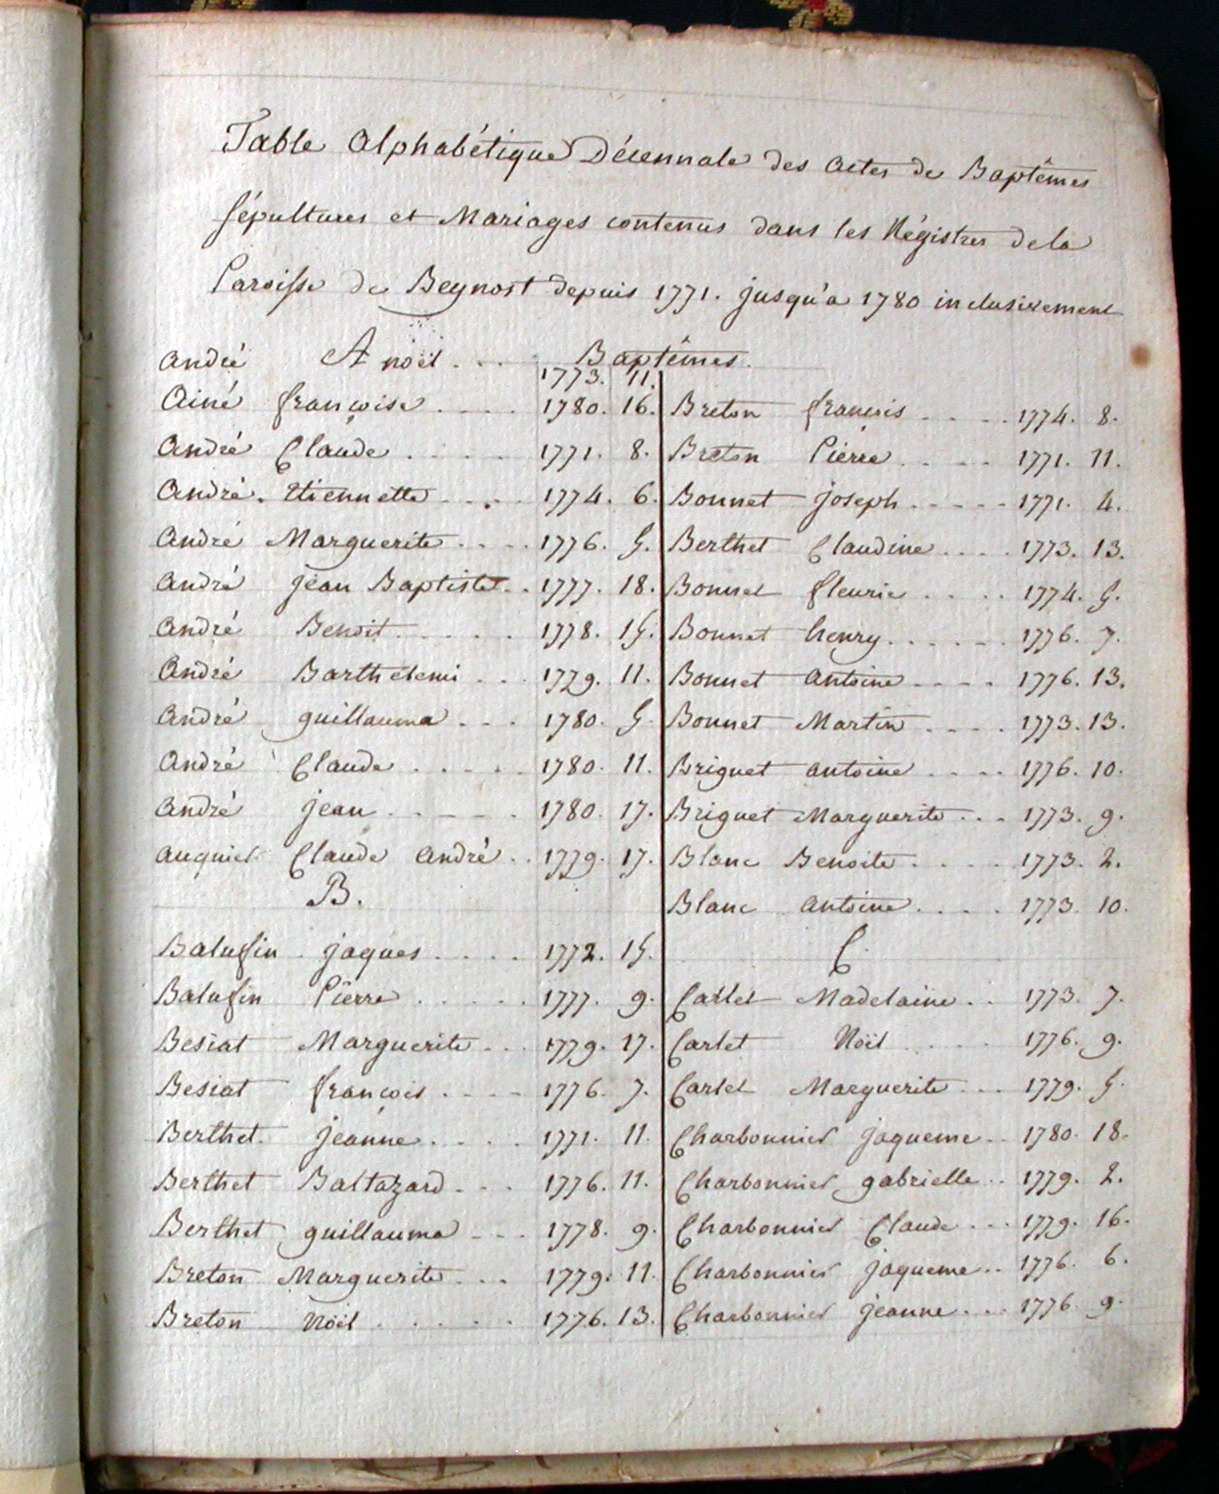 Table Alphabétique Décennale des Actes de Baptêmes
Sépultures et Mariages contenus dans les Régistres de la
Paroisse de Beynost depuis 1771. jusqu'a 1780 inclusivement
A Baptêmes.
André noël . . . 1773. 11.
Ainé françoise . . . . 1780. 16.
André Claude . . . . . 1771. 8.
André. Etiennette . . . . 1774. 6.
André Marguerite . . . . 1776. 5.
André jean Baptiste . . 1777. 18.
André Benoit . . . . . 1778. 15.
André Barthélemi . . . 1779. 11.
André guillauma . . . 1780. 5.
André Claude . . . . . 1780. 11.
André jean . . . . . 1780. 17.
Claude André . . 1779. 17.
B.
Balufin jaques . . . . 1772. 15.
Balufin Pierre . . . . . 1777. 9.
Besiat Marguerite . . . 1779. 17.
Besiat françois . . . . 1776. 7.
Berthet jeanne . . . . 1771. 11.
Berthet Baltazard . . . 1776. 11.
Berthet guillauma . . . 1778. 9.
Breton Marguerite . . . 1779. 11.
Breton Noël . . . . . 1776. 13.
Breton françois . . . . 1774. 8.
Breton Pierre . . . . 1771. 11.
Bonnet joseph . . . . . 1771. 4.
Berthet Claudine . . . . 1773. 13.
Bonnet fleurie . . . . 1774. 5.
Bonnet henry . . . . . . 1776. 7.
Bonnet Antoine . . . . 1776. 13.
Bonnet Martin . . . . 1773. 13.
Briguet antoine . . . . 1776. 10.
Briguet Marguerite . . . 1773. 9.
Blanc Benoite . . . . 1773. 2.
Blanc antoine . . . . 1773. 10.
C.
Carlet Madelaine . . 1773. 7.
Carlet Noël . . . . 1776. 9.
Carlet Marguerite . . . 1779. 5.
Charbonnier jaqueme . . 1780. 18.
Charbonnier gabrielle . . 1779. 2.
Charbonnier Claude . . . 1779. 16.
Charbonnier jaqueme . . 1776. 6.
Charbonnier jeanne . . . 1776. 9.